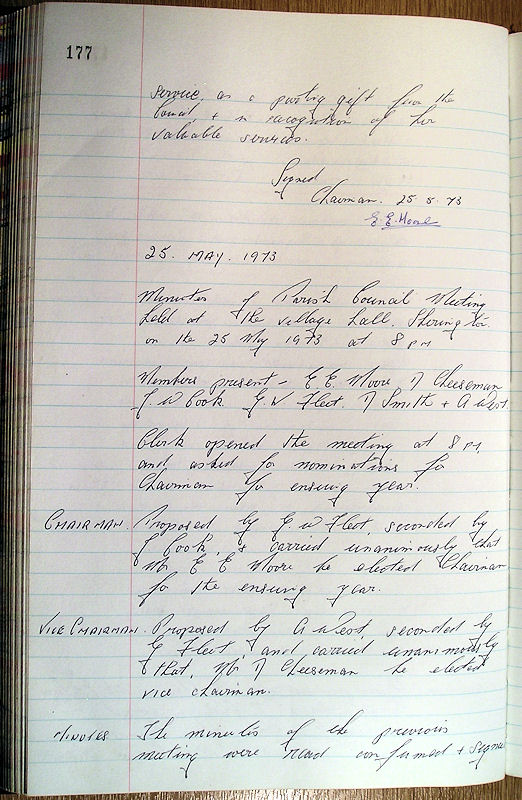 177
service, as a parting gift from the
Council, + in recognition of her
valuable services.
Signed
Chairman. 25.5.73
E.E. Moore
25. MAY. 1973
Minutes of Parish Council Meeting
held at the village hall, Sherington.
on the 25 May 1973 at 8 pm
Members present - E E Moore Cheeseman
J W Cook G W Fleet. Smith + A West.
Clerk opened the meeting at 8 pm,
and asked for nominations for
Chairman for ensuing year.
CHAIRMAN. Proposed by G W Fleet, seconded by
J Cook, & carried unanimously that
Mr E E Moore be elected Chairman
for the ensuing year.
VICE CHAIRMAN. Proposed by A West, seconded by
G Fleet, and carried unanimously
that, Mr Cheeseman be elected
vice chairman.
MINUTES The minutes of the previous
meeting were read confirmed + signed